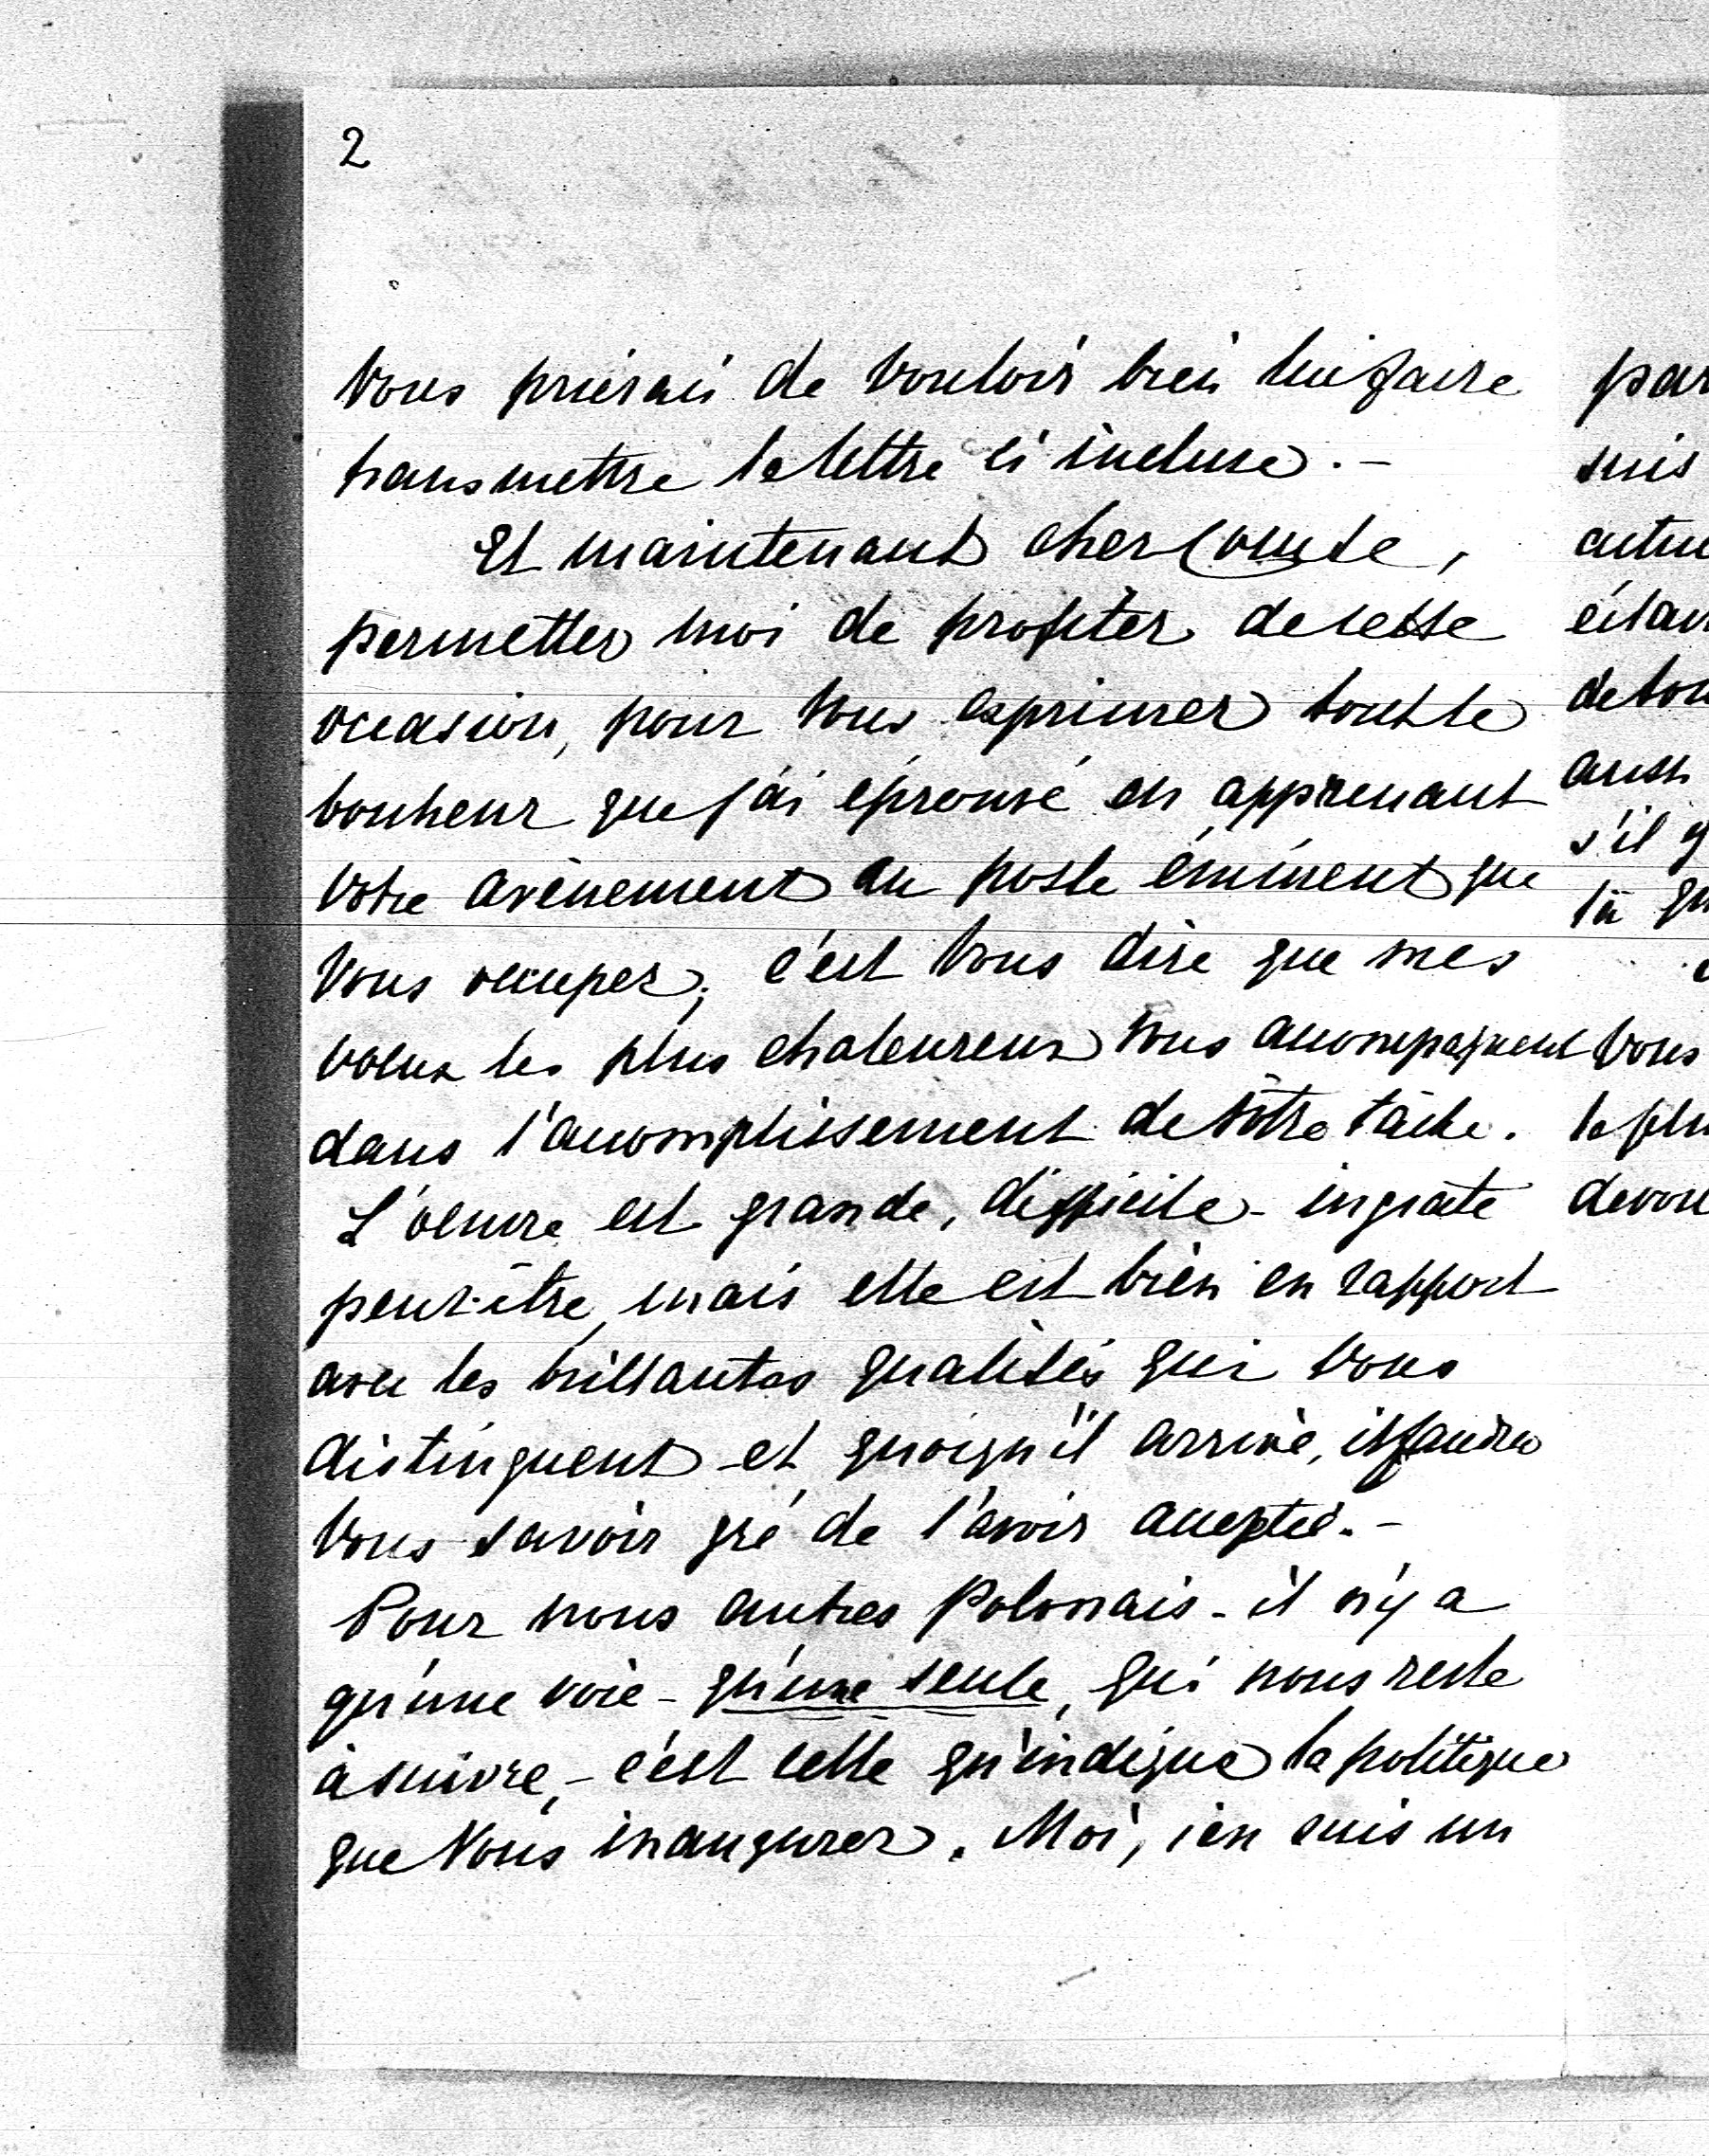 2
Vous prierais de vouloir bien lui faire
transmettre la lettre ci incluse. –
Et maintenant cher Comte,
permettez moi de profiter de cette
occasion, pour Vous exprimer tout le
bonheur que j'ai éprouvé en apprenant
Votre avènement au poste éminent que
Vous occupez; c'est Vous dire que mes
voeux les plus chaleureux Vous accompagnent
dans l'accomplissement de Vôtre tâche.
L'oeuvre est grande, difficile – ingrate
peut-être, mais elle est bien en rapport
avec les brillantes qualités qui Vous
distinguent et quoiqu'il arrive, il faudra
Vous savoir gré de l'avoir acceptée. –
Pour nous autres Polonais – il n'y a
qu'une voie – qu'une seule, qui nous reste
à suivre, – c'est celle qu'indique la politique
que Vous inaugurez. Moi, j'en suis un
par
suis
s'il
Vous